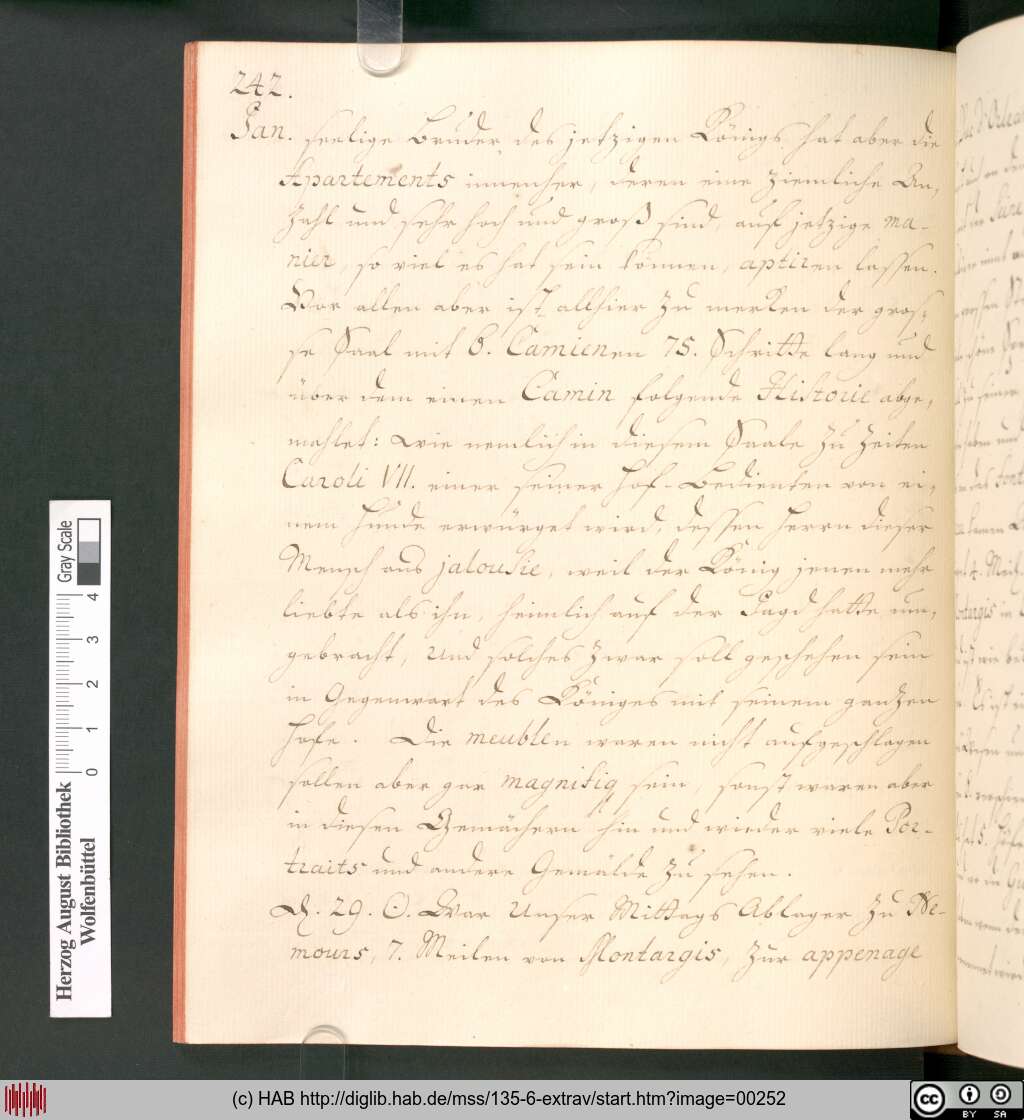 242.
Jan. seelige Bruder des jetzigen Königs hat aber die
Apartements innenher, deren eine ziemliche An,
zahl und sehr hoch und groß sind, auf jetzige ma-
nier, so viel es hat sein können, aptiren lassen.
Vor allen aber ist allhier zu merken der gros,
se Saal mit 6. Camienen 75. Schritte lang und
über dem einen Camin folgende Historie abge,
mahlet: wie nemlich in diesem Saale zu Zeiten
Caroli VII. einer seiner Hof-Bedienten von ei,
nem Hunde erwürget wird, dessen Herrn dieser
Mensch aus jalousie, weil der König jenen mehr
liebte als ihn, heimlich auf der Jagd hatte um,
gebracht, und solches zwar soll geschehen sein
in Gegenwart des Königes mit seinem ganzen
Hofe. Die meublen waren nicht aufgeschlagen
sollen aber gar magnifiq sein, sonst waren aber
in diesen Gemächern hin und wieder viele Por-
traits und andere Gemälde zu sehen.
D. 29. ☉. War Unser Mittags Ablager zu Ne-
mours, 7. Meilen von Montargis, zur appenage
Herzog August Bibliothek
Wolfenbüttel
0 1 2 3 4
Gray Scale
(c) HAB http://diglib.hab.de/mss/135-6-extrav/start.htm?image=00252
cc BY SA